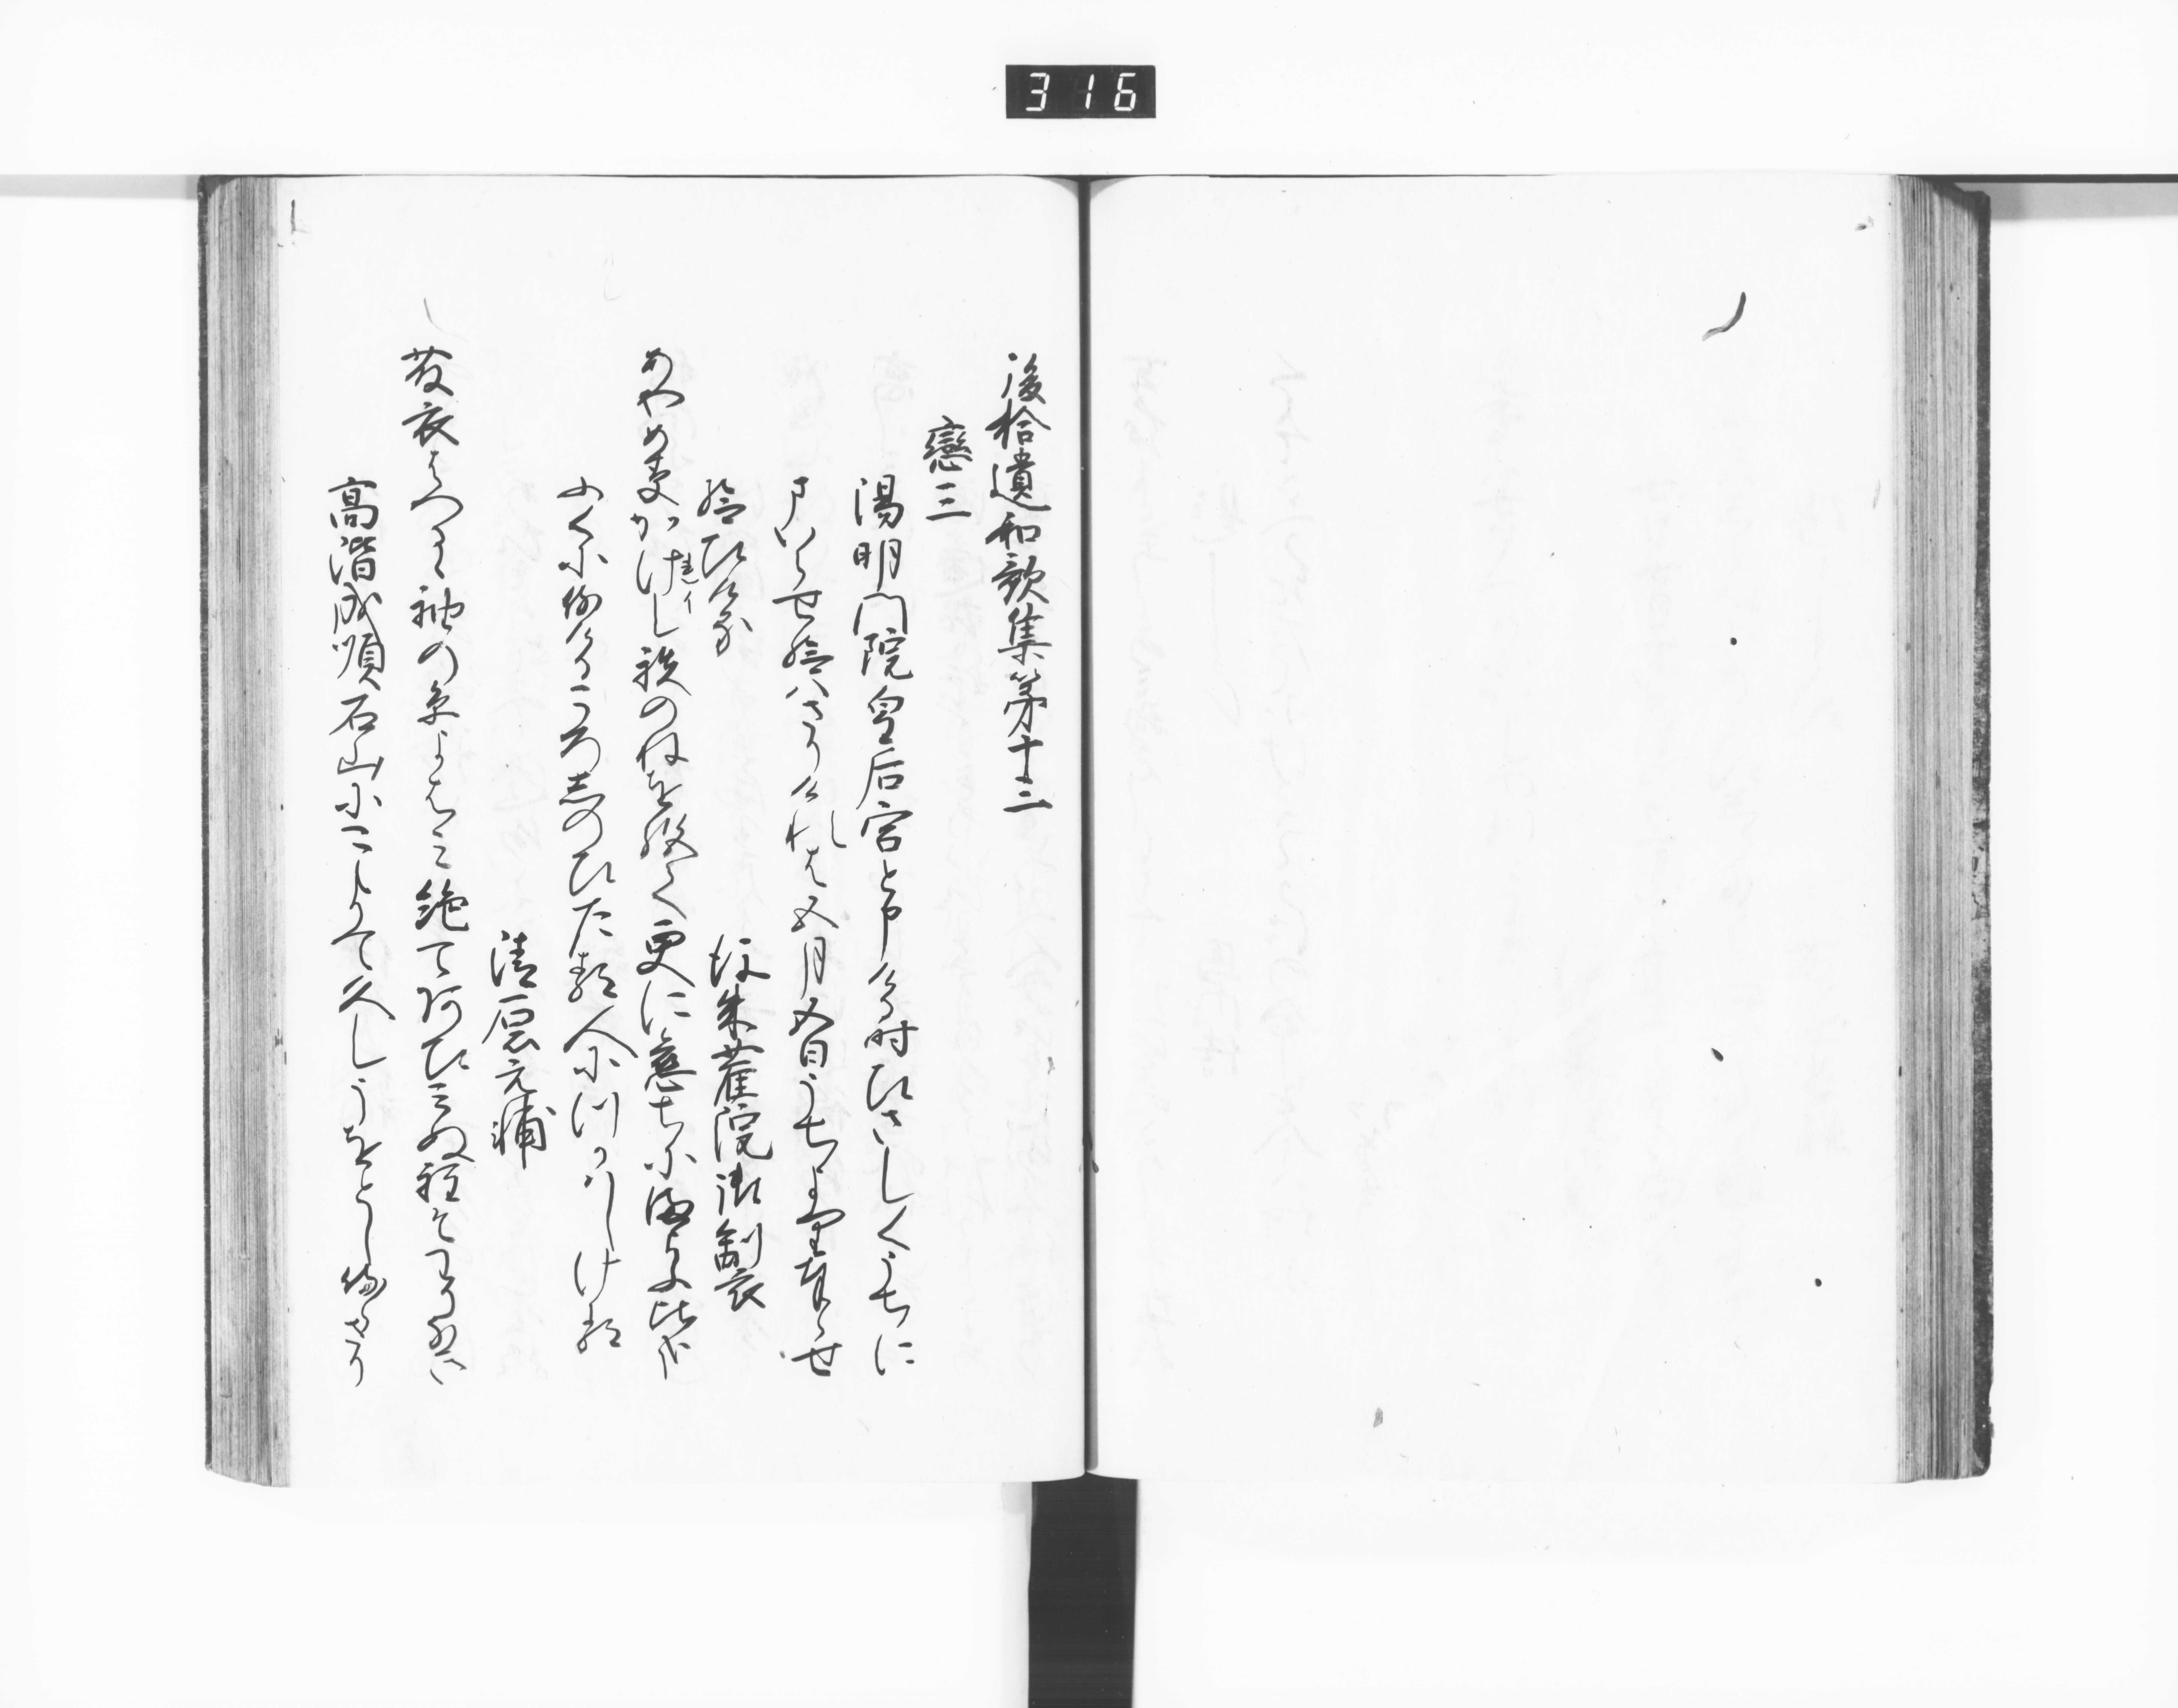 316
後拾遺和歌集第十三
戀三
陽明門院皇后宮と申ける時ひさしくうちに
まいらせ給はさりけれは五月五日うちよりたてまつらせ
給ひける
後朱雀院御製
あやめ草かけし袂のねを絶て更に恋ちにまよふ比哉
ふくに侍けるころしのひたる人につかはしける
清原元輔
藤衣はつるゝ袖の糸よはみ絶てあひみぬ程そわりなき
高階成順石山にこもりて久しうをとし侍らさり